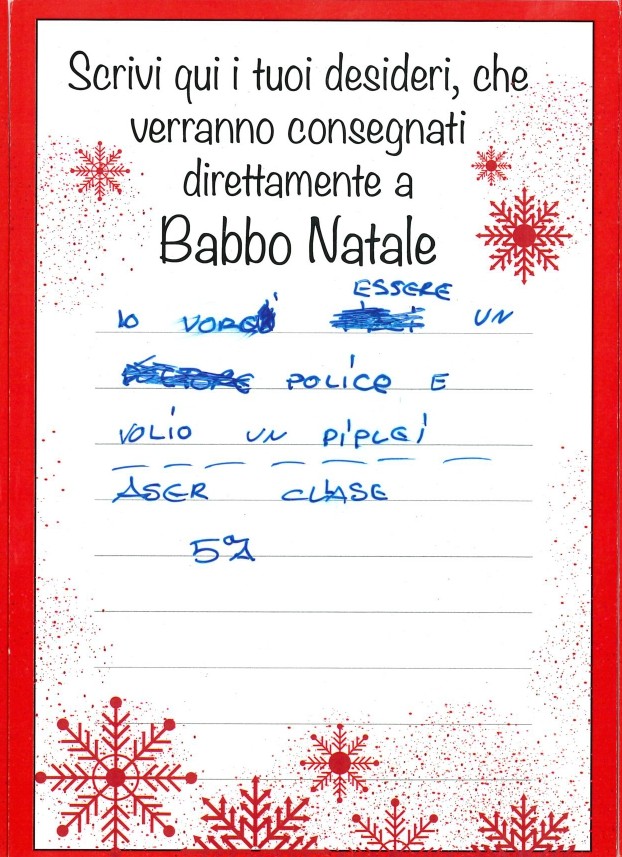 Scrivi qui i tuoi desideri, che
verranno consegnati
direttamente a
Babbo Natale
ESSERE
IO VORεI UN
POLICE E
VOLIO UN PIPLEI
ASER CLASE
5ªA